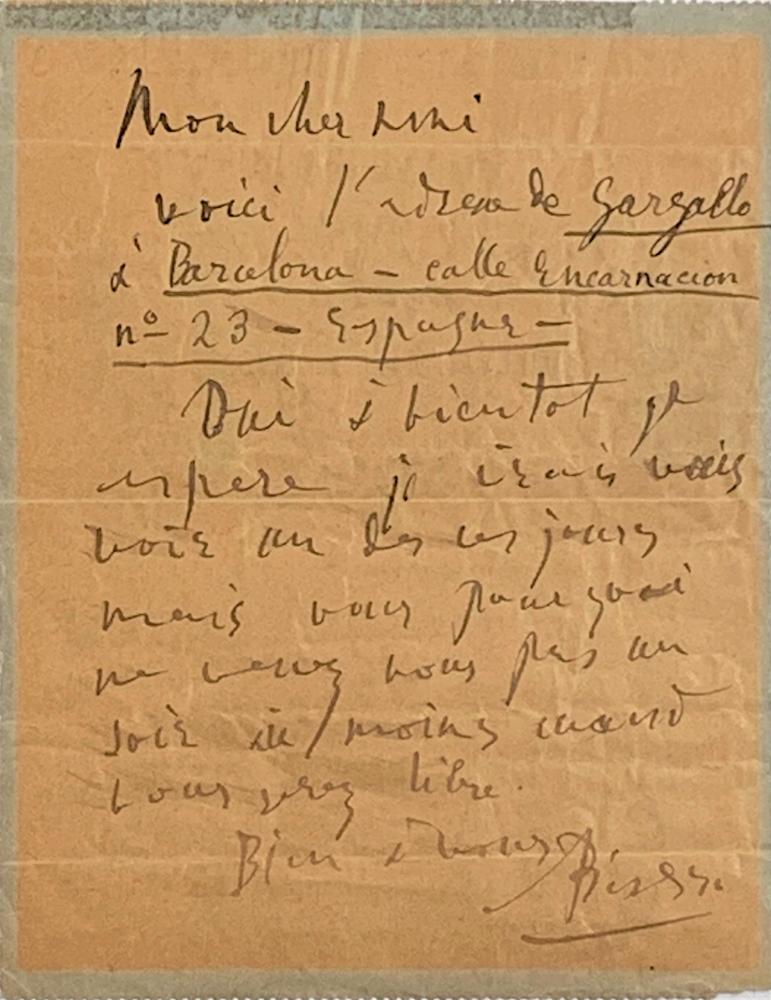 Mon cher ami
voici l'adresse de Gargallo
a Barcelona – calle Encarnacion
nº 23 – Espagne –
Oui à bientot je
espere je irais vous
voir un des ces jours
mais vous pourquoi
ne venez vous pas un
soir au moins quand
vous serez libre.
Bien à vous Picasso